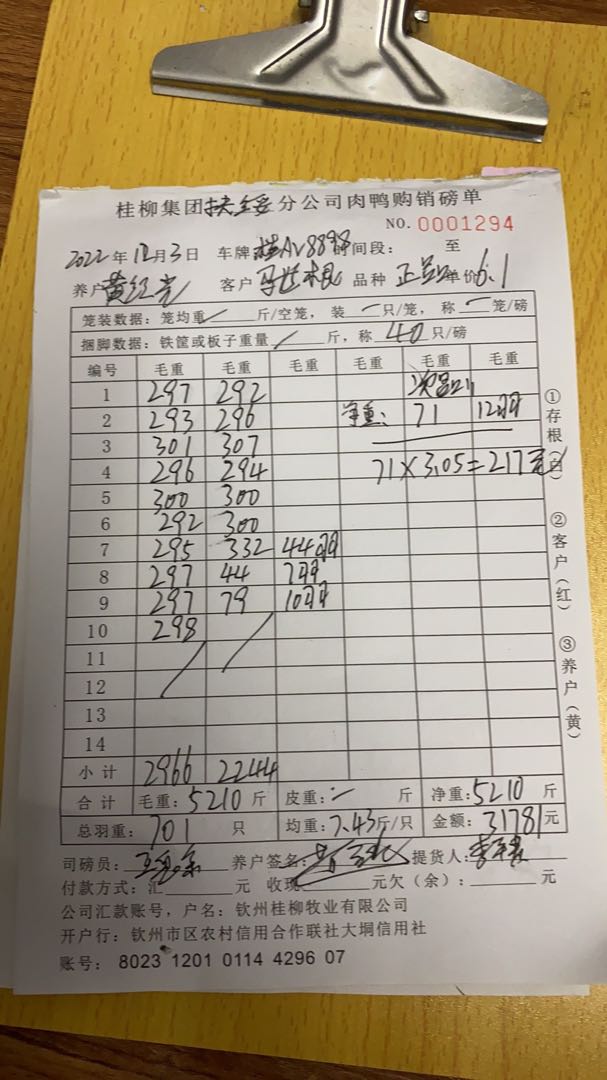 桂柳集团扶绥分公司肉鸭购销磅单
NO. 0001294
2022年12月3日 车牌:桂AV8898时间段: 至
养户 客户 品种 正品 单价6.1
笼装数据:笼均重/斤/空笼,装一只/笼,称一笼/磅
捆脚数据:铁筐或板子重量/斤,称40只/磅
编号 毛重 毛重 毛重 毛重 毛重 毛重
1 297 292 次品
2 293 296 净重: 71 12羽
3 301 307
4 296 294 71×3.05=217元
5 300 300
6 292 300
7 295 332 44羽
8 297 44 7羽
9 297 79 10羽
10 298
11
12
13
14
小计 2966 2244
合计 毛重:5210斤 皮重:一 斤 净重:5210斤
总羽重:701只 均重:7.43斤/只 金额:31781元
司磅员: 养户签名: 提货人:
付款方式:汇 元 收现 元欠(余): 元
公司汇款账号,户名:钦州桂柳牧业有限公司
开户行:钦州市区农村信用合作联社大垌信用社
账号: 8023 1201 0114 4296 07
①存根(白)
②客户(红)
③养户(黄)